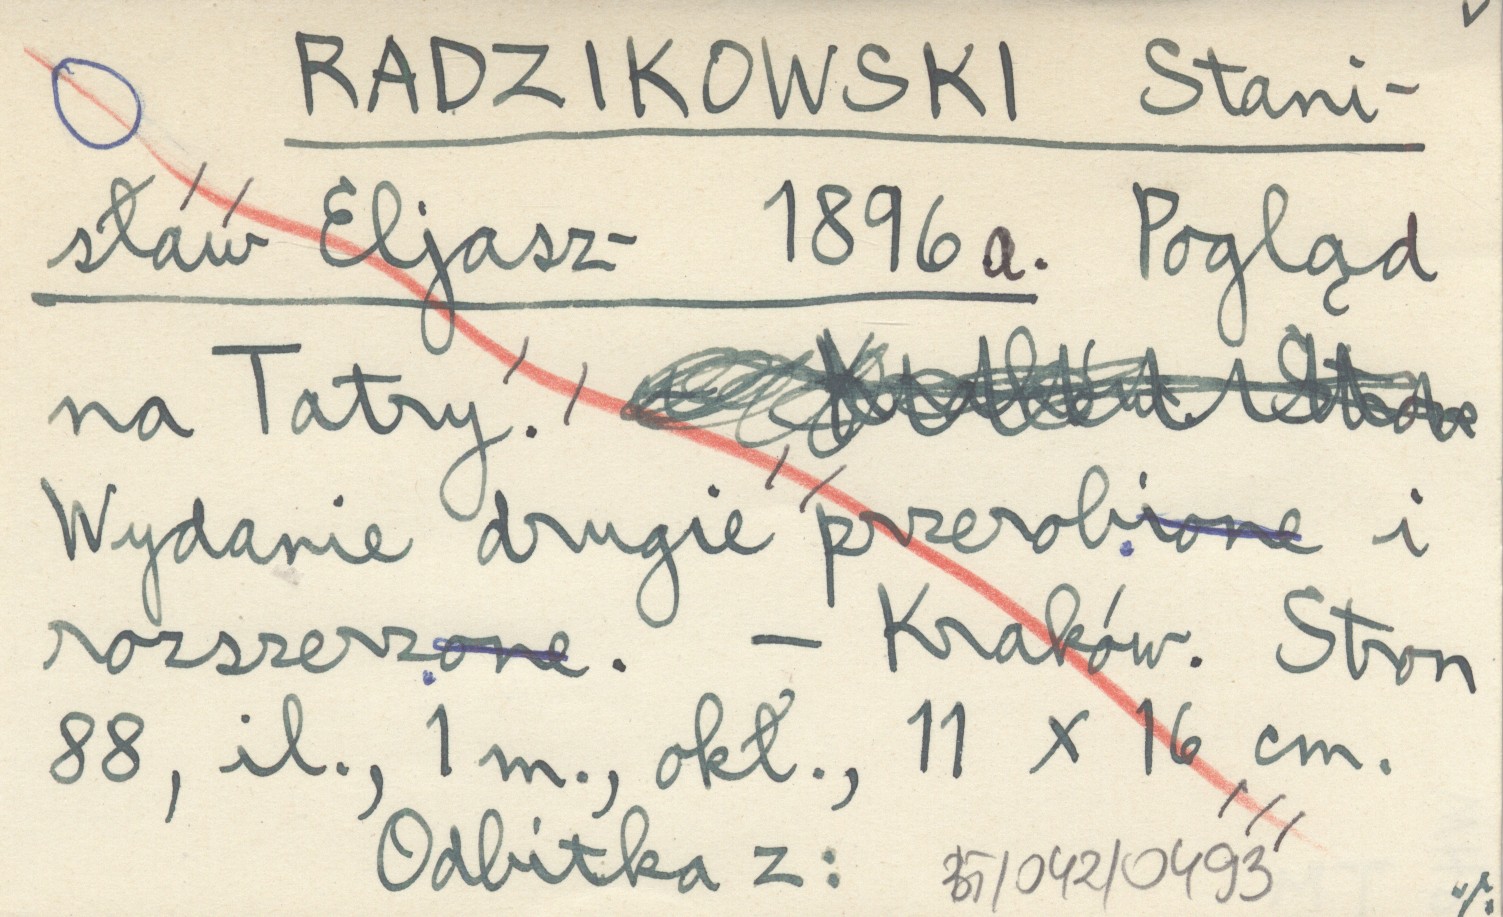 RADZIKOWSKI Stani-
sław Eljasz- 1896a. Pogląd
na Tatry.
Wydanie drugie przerobione i
rozszerzone. — Kraków. Stron
88, il., 1 m., okł., 11 x 16 cm.
Odbitka z:
/042/0493